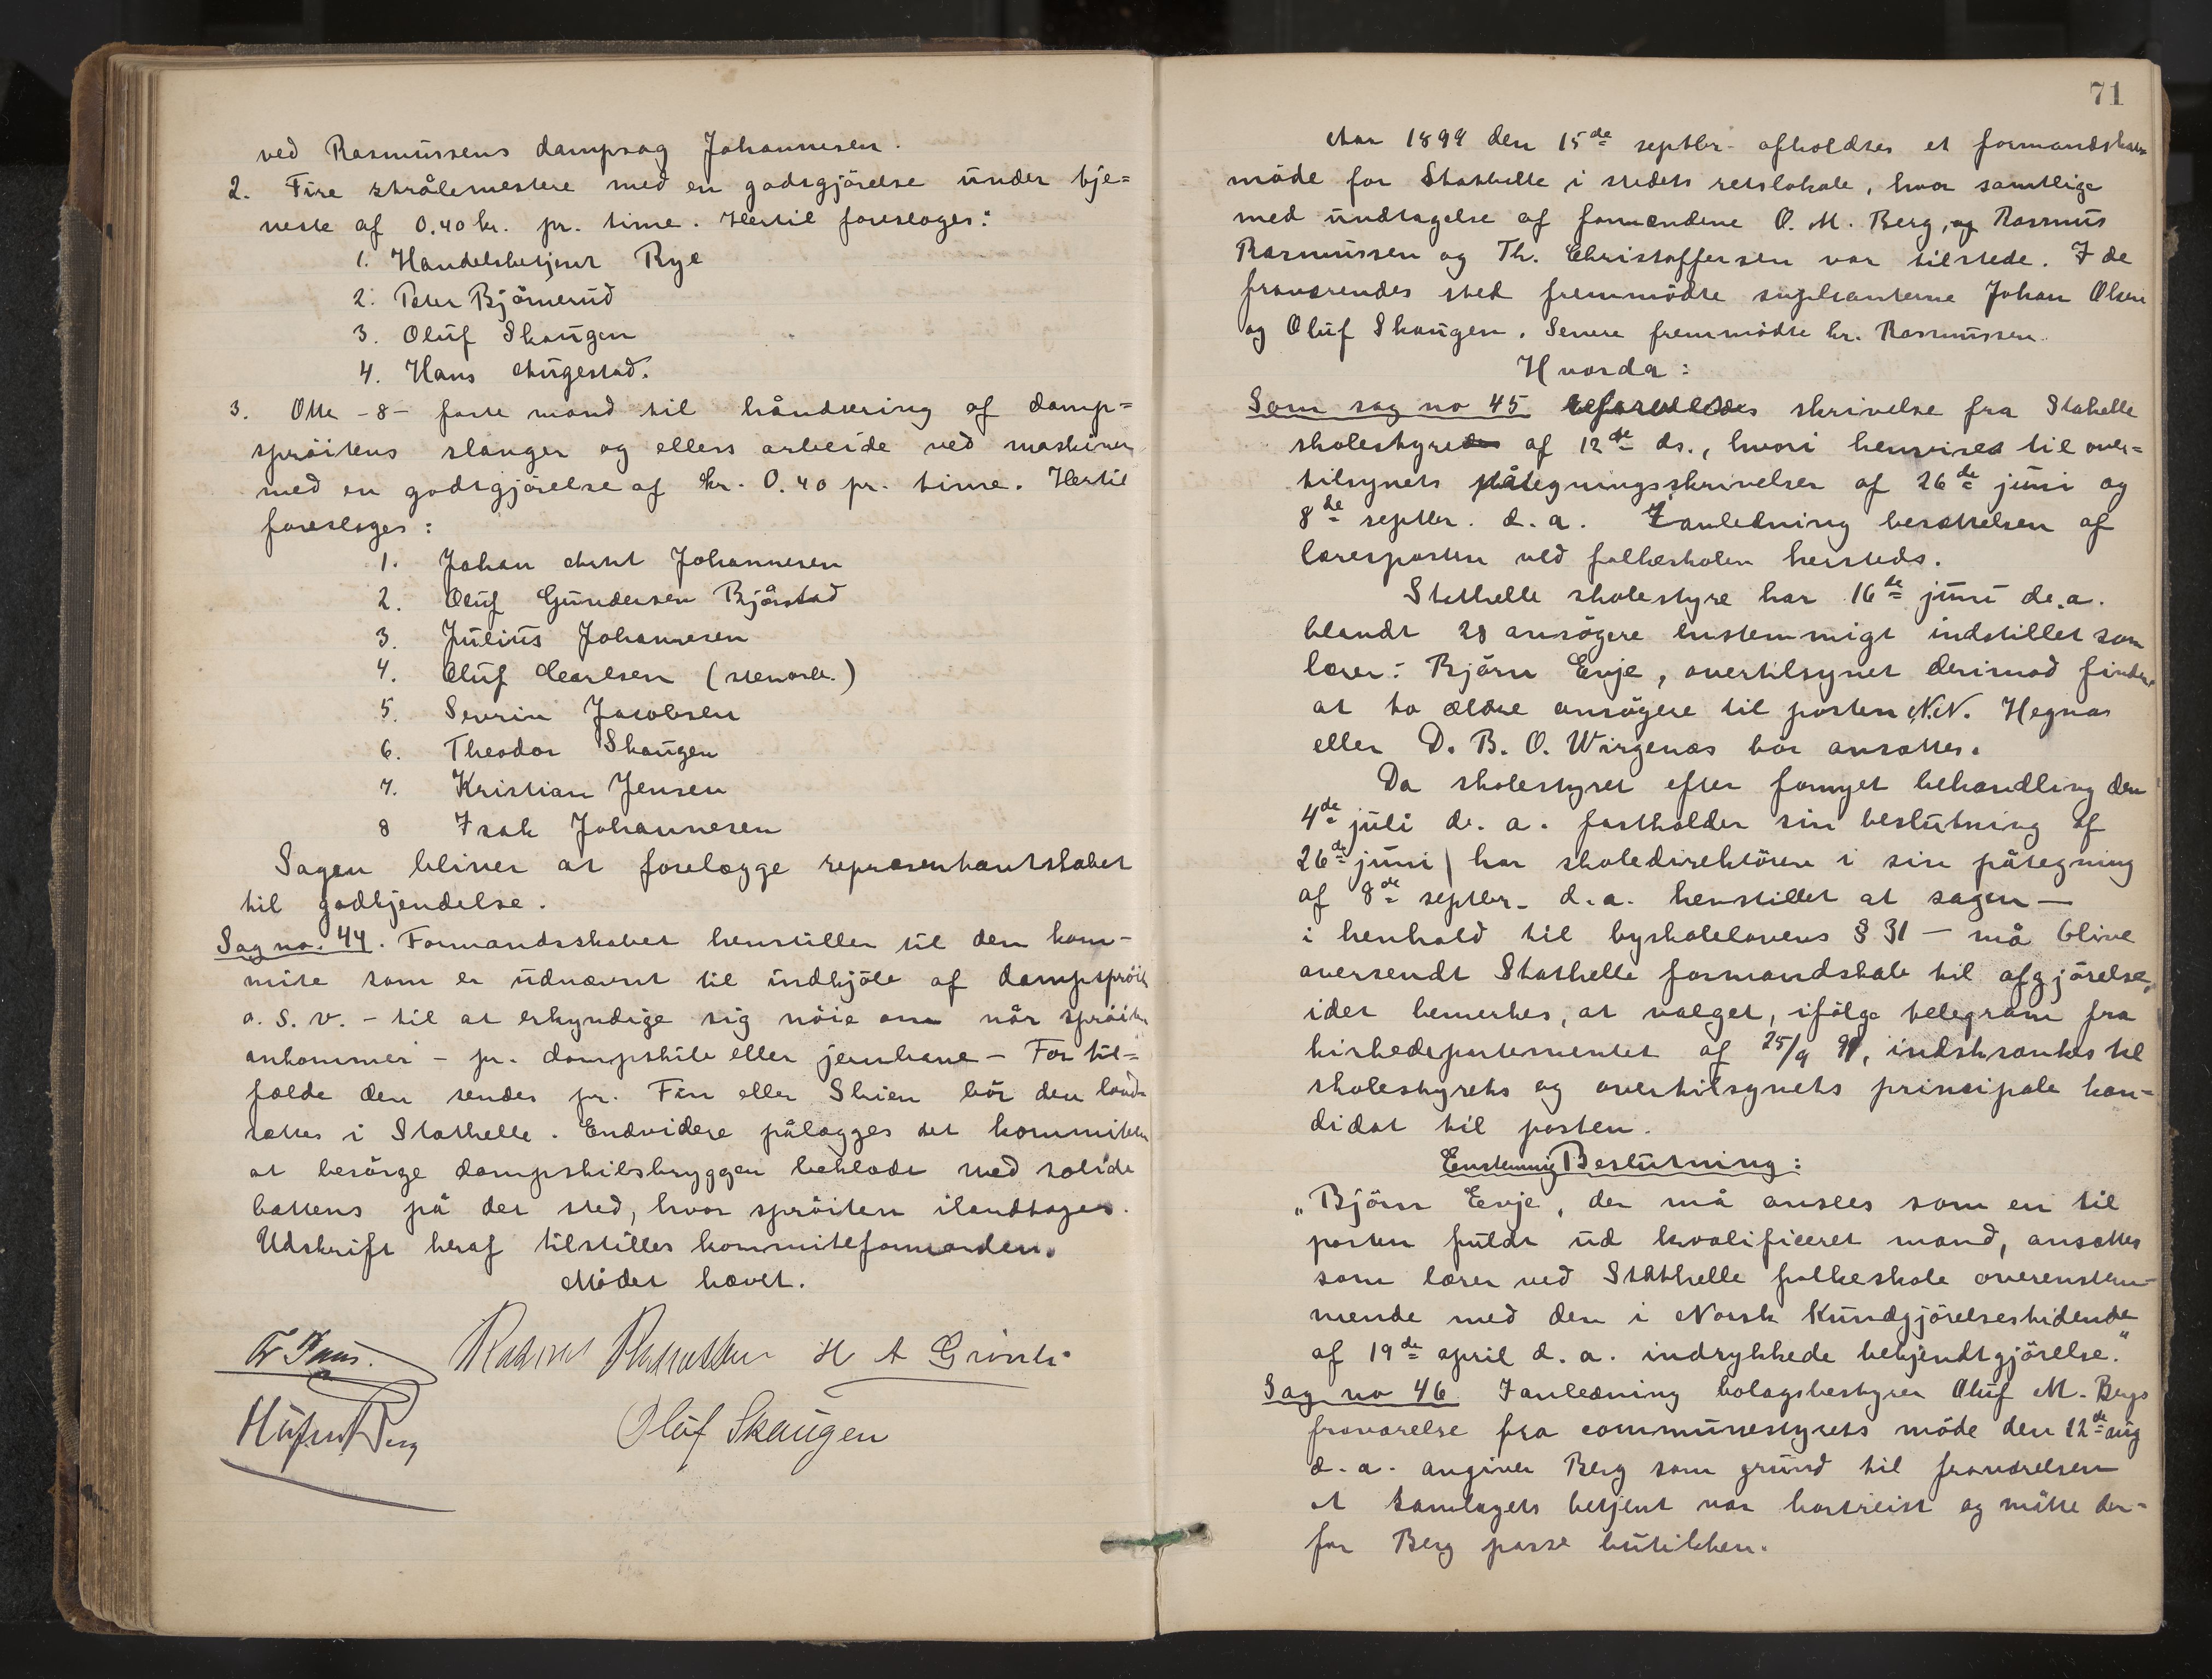 ved Rasmussens dampsag Johannesen.
2. Fire strålemestere med en godtgjörelse under tje=
neste af 0.40 kr. pr. time. Hertil foreslåges:
1. Handelsbetjent Rye
2. Peter Björnerud
3. Oluf Skaugen
4. Hans Augestad.
3. Otte -8- faste mand til håndtering af damp=
spröitens slanger og ellers arbeide ved maskinen
med en godtgjörelse af kr. 0.40 pr. time. Hertil
foreslåges:
1. Johan Arnt Johannesen
2. Oluf Gundersen Bjårstad
3. Julius Johannesen
4. Oluf Carlsen (stenarb.)
5. Severin Jacobsen
6. Theodor Skaugen
7. Kristian Jensen
8 Isak Johannesen
Sagen bliver at forelægge repræsentantskabet
til godkjendelse.
Sag no. 44. Formandsskabet henstiller til den kom-
mite som er udnævnt til indkjöb af dampspröite
o.s.v. - til at erkyndige sig nöie om når spröiten
ankommer - pr. dampskib eller jernbane - For til=
fælde den sendes pr. Finn eller Skien bör den land-
sættes i Stathelle. Endvidere pålægges det kommitéen
at besörge dampskibsbryggen beklædt med solide
battens på det sted, hvor spröiten ilandtages.
Udskrift heraf tilstilles kommiteformanden.
Mödet hævet.
Rasmus Rasmussen H A Grönli
Oluf Skaugen
71
Aar 1899 den 15de septbr. afholdtes et formandskabs
möde for Stathelle i stedets retslokale, hvor samtlige
med undtagelse af formændene O. M. Berg, og Rasmus
Rasmussen og Th. Christoffersen var tilstede. I de
fraværendes sted fremmödte suplianterne Johan Olsen
og Oluf Skaugen. Senere fremmödte hr. Rasmussen.
Hvorda:
Som sag no 45 skrivelse fra Stathelle
skolestyre af 12de ds., hvori henvises til over=
tilsynets påtegningsskrivelser af 26de juni og
8de septbr. d.a. I anledning besættelsen af
lærerposten ved folkeskolen hersteds.
Stathelle skolestyre har 16de juni d.a.
blandt 28 ansögere enstemmigt indstillet som
lærer: Björn Evje, overtilsynet derimod finder
at to ældre ansögere til posten N.N. Hegna
eller D. B. O. Wirgenæs bör ansættes.
Da skolestyret efter fornyet behandling den
4de juli d. a. fastholder sin beslutning af
26de juni har skoledirektören i sin påtegning
af 8de septbr. d.a. henstillet at sagen —
i henhold til byskolelovens § 31 — må blive
oversendt Stathelle formandskab til afgjörelse,
idet bemerkes, at valget, ifölge telegram fra
kirkedepartementet af 25/9 91, indskrænkes til
skolestyrets og overtilsynets principale kan-
didat til posten.
Enstemmig Beslutning:
„Björn Evje, der må ansees som en til
posten fuldt ud kvalificeret mand, ansættes
som lærer ved Stathelle folkeskole overenstem-
mende med den i Norsk Kundgjörelsestidende
af 19de april d. a. indrykkede bekjendtgjörelse."
Sag no 46. I anledning bolagsbestyrer Oluf M. Bergs
fraværelse fra communestyrets möde den 12de aug
d. a. angiver Berg som grund til fraværelsen
at samlagets betjent var bortreist og måtte der=
for Berg passe butikken.